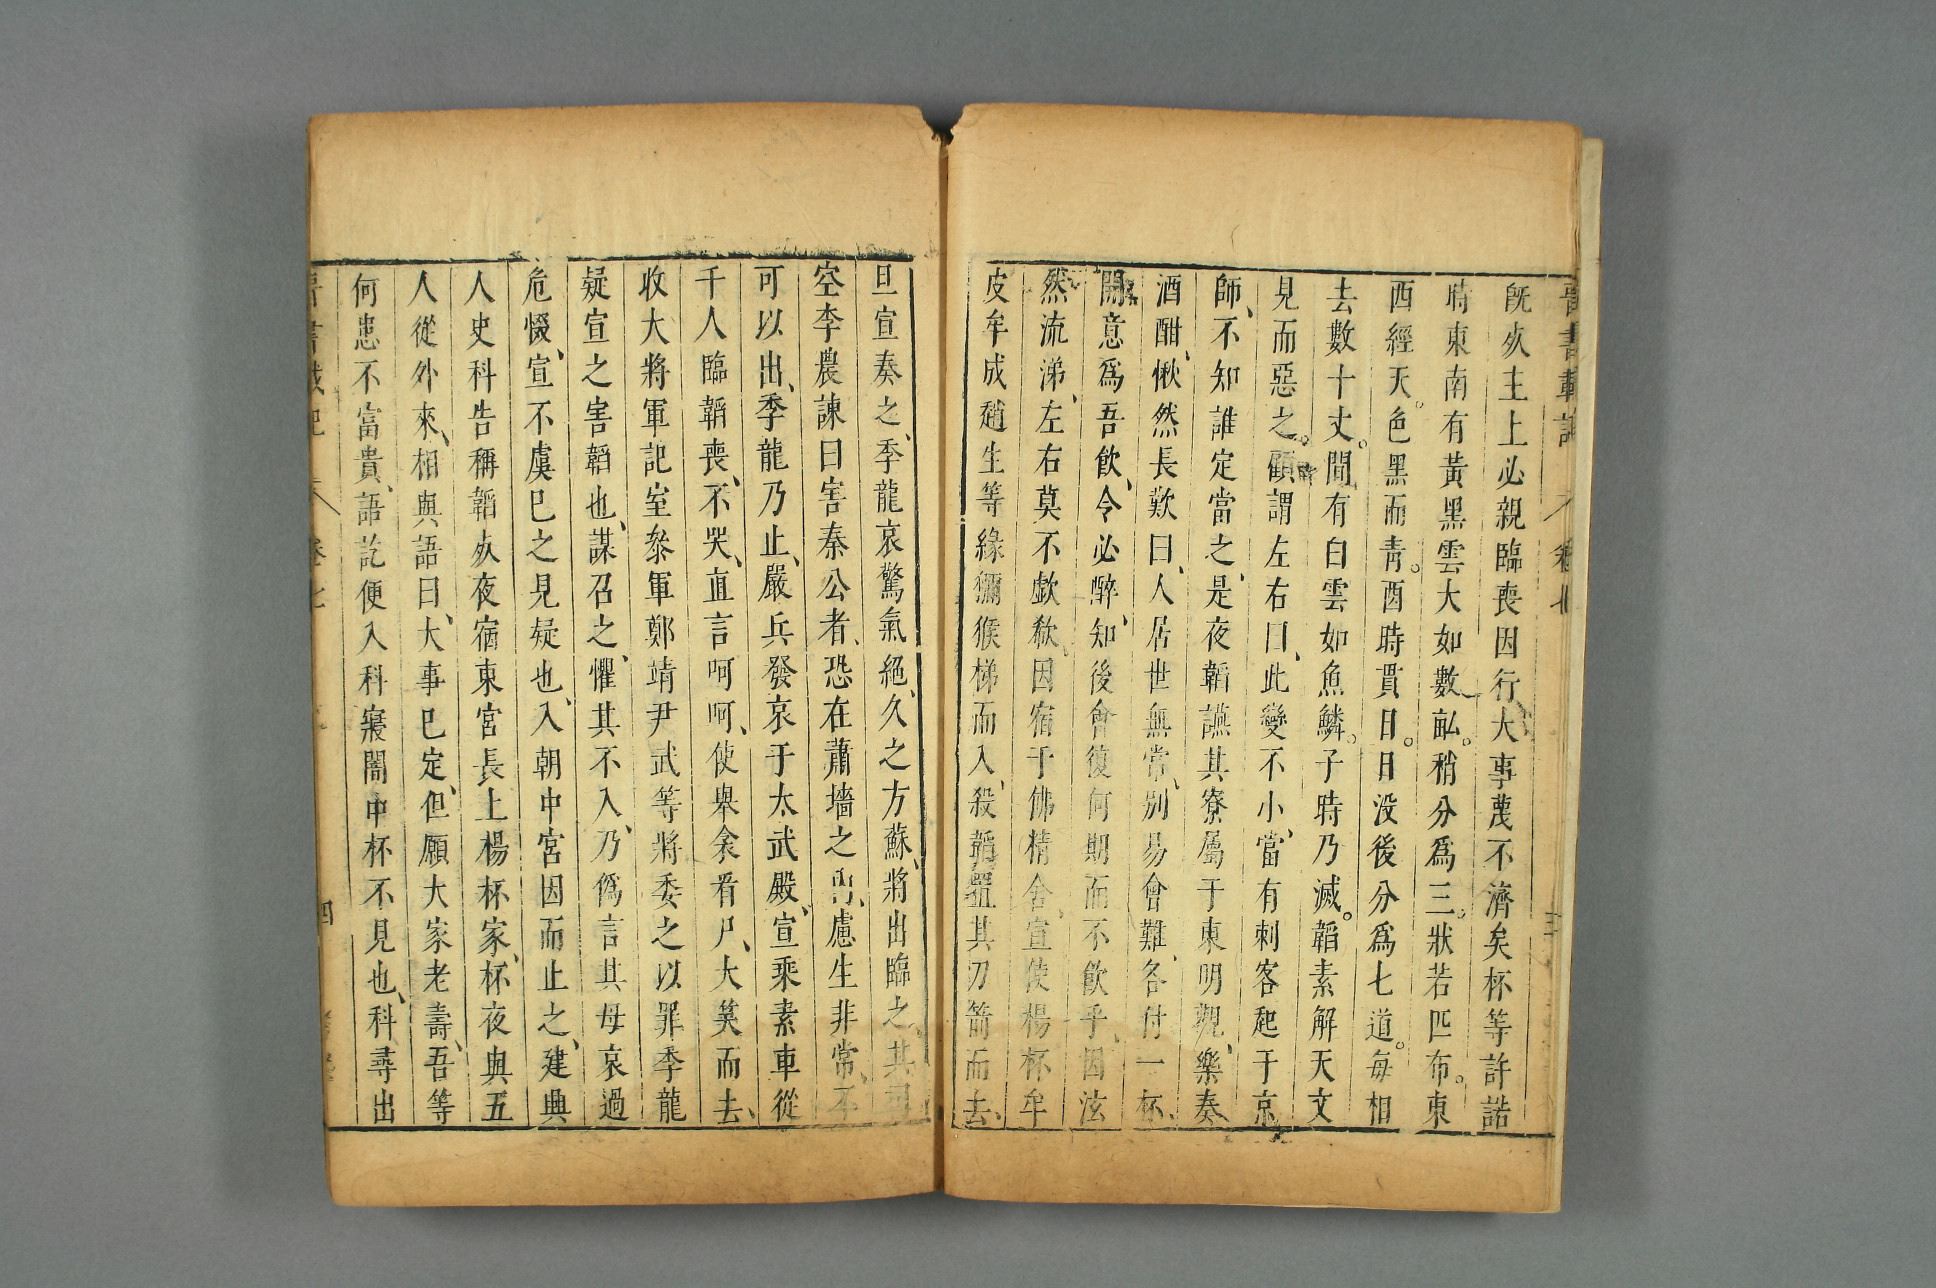 晉書載記　卷七　三
旣死主上必親臨喪因行大事蔑不濟矣杯等許諾
時東南有黃黑雲大如數畝。稍分爲三。狀若匹布。東
西經天。色黑而靑。酉時貫日。日没後分爲七道。每相
去數十丈。間有白雲如魚鱗。子時乃滅。韜素解天文
見而惡之。顧謂左右曰、此變不小、當有刺客起于京
師、不知誰定當之、是夜韜讌其寮屬于東明觀、樂奏
酒酣、愀然長歎曰、人居世無常、別易會難、各付一杯、
開意爲吾飮、令必醉、知後會復何期而不飮乎、因泫
然流涕、左右莫不歔欷、因宿于佛精舍、宣使楊杯牟
皮牟成趙生等緣獼猴梯而入、殺韜置其刀箭而去、
旦宣奏之、季龍哀驚氣絕、久之方蘇、將出臨之、其司
空李農諫曰害秦公者、恐在蕭墻之內、慮生非常、不
可以出、季龍乃止、嚴兵發哀于太武殿、宣乘素車從
千人臨韜喪、不哭、直言呵呵、使舉衾看尸、大笑而去、
收大將軍記室叅軍鄭靖尹武等將委之以罪季龍
疑宣之害韜也、謀召之、懼其不入、乃僞言其母哀過
危惙、宣不虞已之見疑也、入朝中宮因而止之、建興
人史科告稱韜死夜宿東宮長上楊杯家、杯夜與五
人從外來、相與語曰、大事已定、但願大家老壽、吾等
何患不富貴、語訖便入科寢闇中杯不見也、科尋出
晉書載記　卷七　四